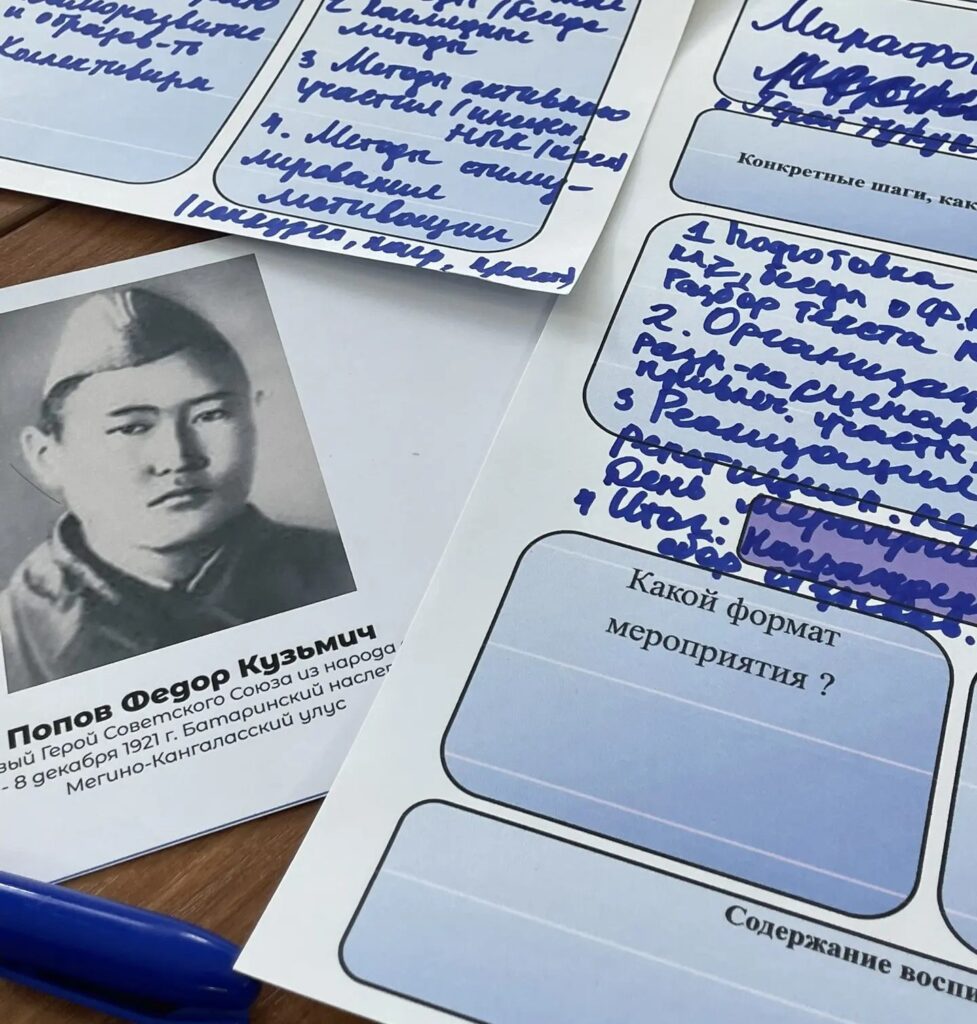 саморазвитие
и образов-ть
Коллективизм
/беседе
2 Наглядные
методы
3 Методы активного
участия
4. Методы стиму-
лирования
мотивации
Марафон
Конкретные шаги, как
1 Подготовка
беседы о Ф.
Разбор текста
2. Организац
разр-ка сценар
привлеч. участн.
3 Реализация
репетиции.
День
4 Итог: награжден
Какой формат
мероприятия ?
Содержание воспи
Попов Федор Кузьмич
вый Герой Советского Союза из народа
- 8 декабря 1921 г. Батаринский наслег
Мегино-Кангаласский улус